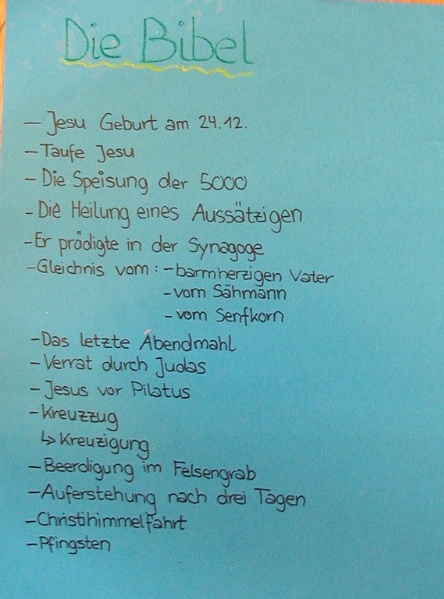 Die Bibel
- Jesu Geburt am 24.12.
- Taufe Jesu
- Die Speisung der 5000
- Die Heilung eines Aussätzigen
- Er prädigte in der Synagoge
- Gleichnis vom: - barmherzigen Vater
- vom Sähmann
- vom Senfkorn
- Das letzte Abendmahl
- Verrat durch Judas
- Jesus vor Pilatus
- Kreuzzug
↳ Kreuzigung
- Beerdigung im Felsengrab
- Auferstehung nach drei Tagen
- Christihimmelfahrt
- Pfingsten